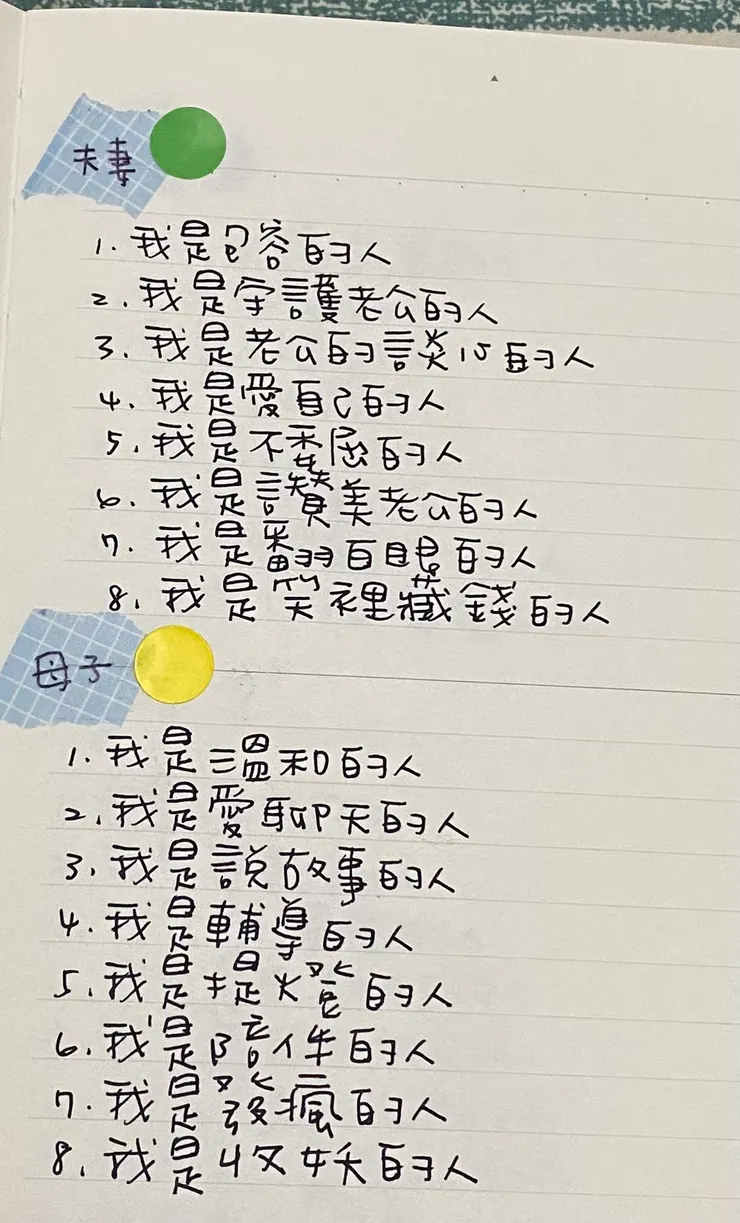 夫妻
1. 我是包容的人
2. 我是守護老公的人
3. 我是老公的談心的人
4. 我是愛自己的人
5. 我是不委屈的人
6. 我是讚美老公的人
7. 我是翻白眼的人
8. 我是笑裡藏錢的人
母子
1. 我是溫和的人
2. 我是愛聊天的人
3. 我是說故事的人
4. 我是輔導的人
5. 我是提燈的人
6. 我是陪伴的人
7. 我是發瘋的人
8. 我是收妖的人